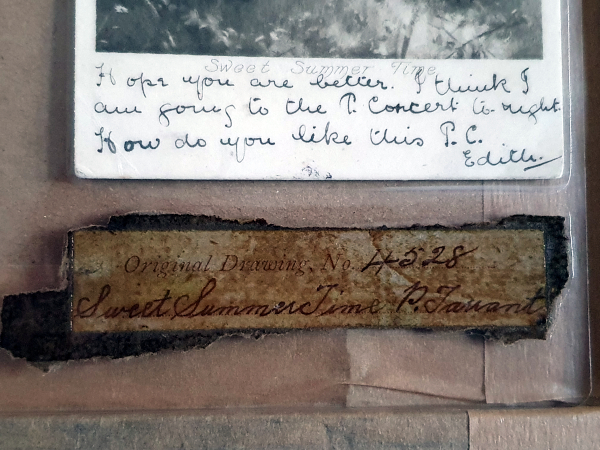 Sweet Summer Time
Hope you are better. I think I
am going to the P. Concert to-night.
How do you like this P.C.
Edith.
Original Drawing, No. 4528
Sweet Summer Time P. Tarrant